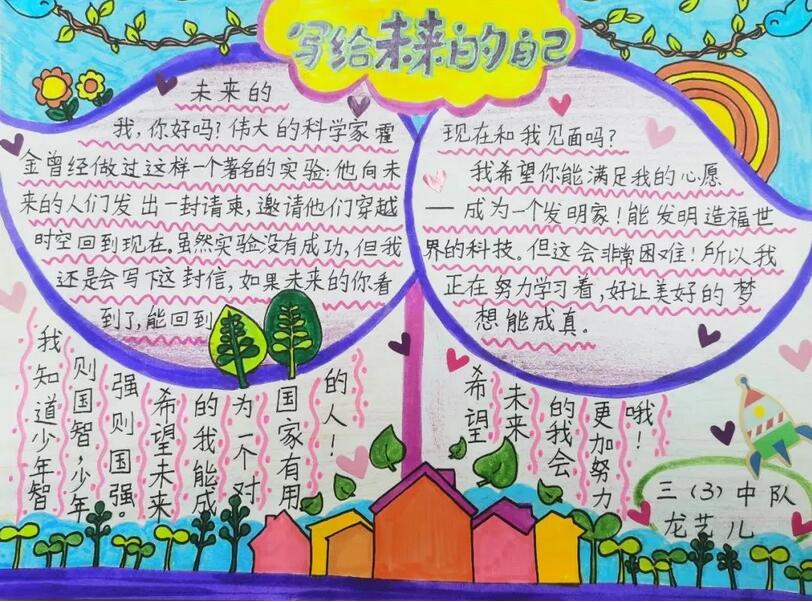 写给未来的自己
未来的
我，你好吗？伟大的科学家霍
金曾经做过这样一个著名的实验：他向未
来的人们发出一封请柬，邀请他们穿越
时空回到现在。虽然实验没有成功，但我
还是会写下这封信，如果未来的你看
到了，能回到
现在和我见面吗？
我希望你能满足我的心愿
——成为一个发明家！能发明造福世
界的科技。但这会非常困难！所以我
正在努力学习着，好让美好的梦
想能成真。
我知道少年智
则国智，少年
强则国强。
希望未来
的我能成
为一个对
国家有用
的人！
希望
未来
的我会
更加努力
哦！
三（3）中队
龙艺儿